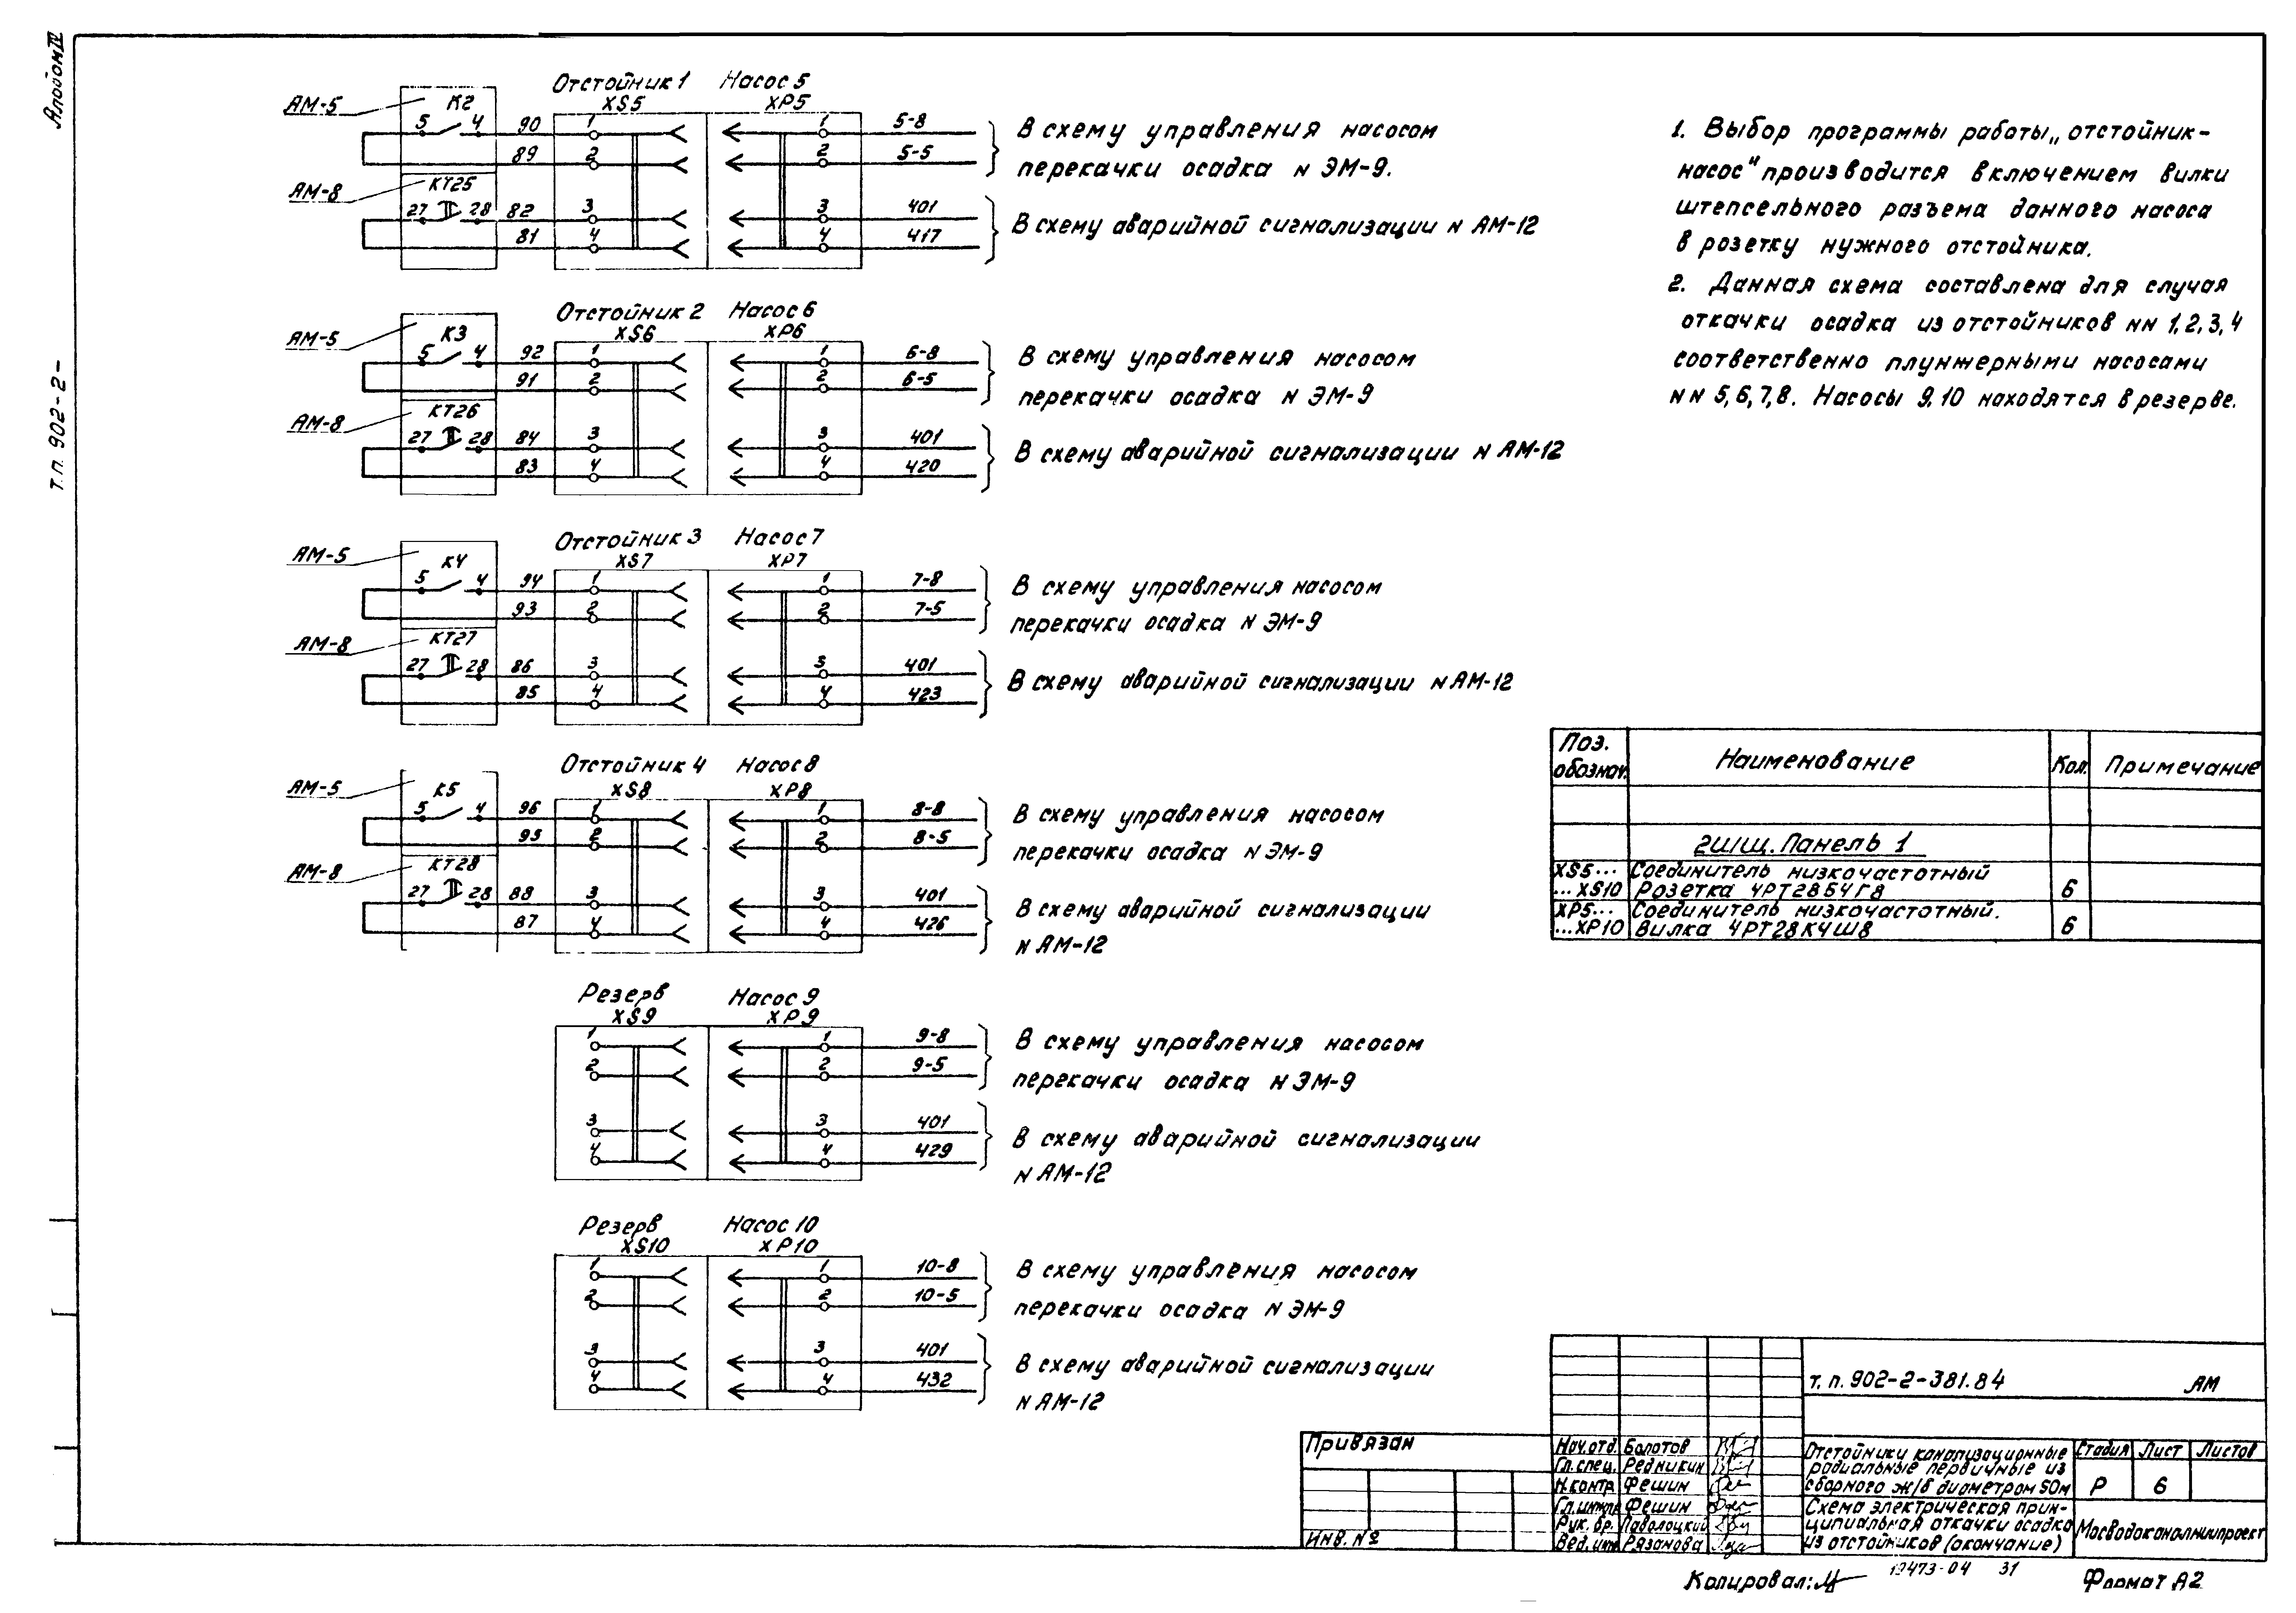 Альбом IV
т.п. 902-2-
Отстойник 1 Насос 5
АМ-5 К2 XS5 XP5
5 4 90 1 1 5-8
89 2 2 5-5
В схему управления насосом
перекачки осадка N ЭМ-9.
АМ-8 КТ25
27 28 82 3 3 401
81 4 4 417
В схему аварийной сигнализации N АМ-12
Отстойник 2 Насос 6
АМ-5 К3 XS6 XP6
5 4 92 1 1 6-8
91 2 2 6-5
В схему управления насосом
перекачки осадка N ЭМ-9
АМ-8 КТ26
27 28 84 3 3 401
83 4 4 420
В схему аварийной сигнализации N АМ-12
Отстойник 3 Насос 7
АМ-5 К4 XS7 XP7
5 4 94 1 1 7-8
93 2 2 7-5
В схему управления насосом
перекачки осадка N ЭМ-9
АМ-8 КТ27
27 28 86 3 3 401
85 4 4 423
В схему аварийной сигнализации N АМ-12
Отстойник 4 Насос 8
АМ-5 К5 XS8 XP8
5 4 96 1 1 8-8
95 2 2 8-5
В схему управления насосом
перекачки осадка N ЭМ-9
АМ-8 КТ28
27 28 88 3 3 401
87 4 4 426
В схему аварийной сигнализации
N АМ-12
Резерв Насос 9
XS9 XP9
1 1 9-8
2 2 9-5
В схему управления насосом
перекачки осадка N ЭМ-9
3 3 401
4 4 429
В схему аварийной сигнализации
N АМ-12
Резерв Насос 10
XS10 XP10
1 1 10-8
2 2 10-5
В схему управления насосом
перекачки осадка N ЭМ-9
3 3 401
4 4 432
В схему аварийной сигнализации
N АМ-12
1. Выбор программы работы „отстойник-
насос" производится включением вилки
штепсельного разъема данного насоса
в розетку нужного отстойника.
2. Данная схема составлена для случая
откачки осадка из отстойников NN 1,2,3,4
соответственно плунжерными насосами
NN 5,6,7,8. Насосы 9,10 находятся в резерве.
Поз. обознач. Наименование Кол. Примечание
2ШЩ. Панель 1
XS5... Соединитель низкочастотный
...XS10 Розетка 4РТ28Б4Г8 6
XP5... Соединитель низкочастотный.
...XP10 Вилка 4РТ28К4Ш8 6
т.п. 902-2-381.84 АМ
Привязан
Инв. №
Нач.отд. Болотов
Гл.спец. Редникин
Н.контр Фешин
Гл.инж.пр Фешин
Рук. бр. Паволоцкий
Вед. инж Рязанова
Отстойники канализационные
радиальные первичные из
сборного ж/б диаметром 50м
Стадия Лист Листов
Р 6
Схема электрическая прин-
ципиальная откачки осадка
из отстойников (окончание)
Мосводоканалниипроект
Копировал: 19473-04 31 Формат А2